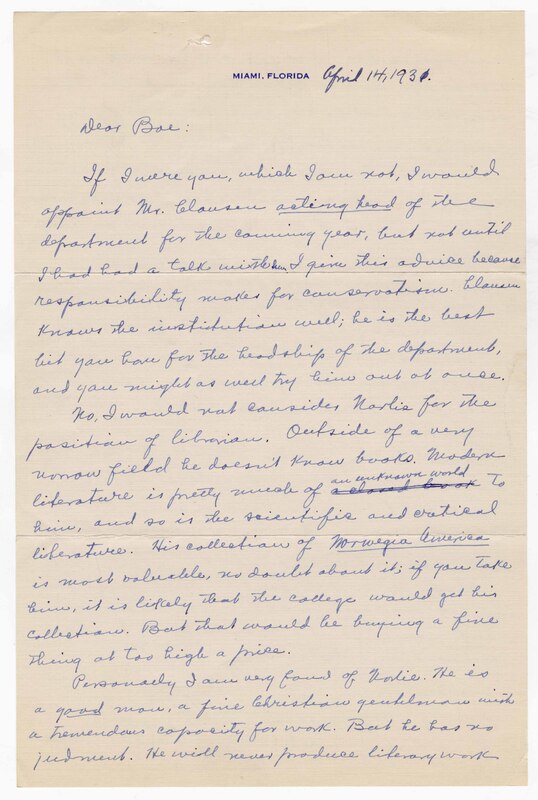 MIAMI, FLORIDA April 14, 1931.
Dear Boe:
If I were you, which I am not, I would
appoint Mr. Clausen acting head of the
department for the coming year, but not until
I had had a talk with him. I give this advice because
responsibility makes for conservatism. Clausen
knows the institution well; he is the best
bit you have for the headship of the department,
and you might as well try him out at once.
No, I would not consider Norlie for the
position of librarian. Outside of a very
narrow field he doesn't know books. Modern
an unknown world
literature is pretty much of a closed book to
him, and so is the scientific and critical
literature. His collection of Norwegia America
is most valuable, no doubt about it; if you take
him, it is likely that the college would get his
collection. But that would be buying a fine
thing at too high a price.
Personally I am very fond of Norlie. He is
a good man, a fine Christian gentleman with
a tremendous capacity for work. But he has no
judment. He will never produce literary work